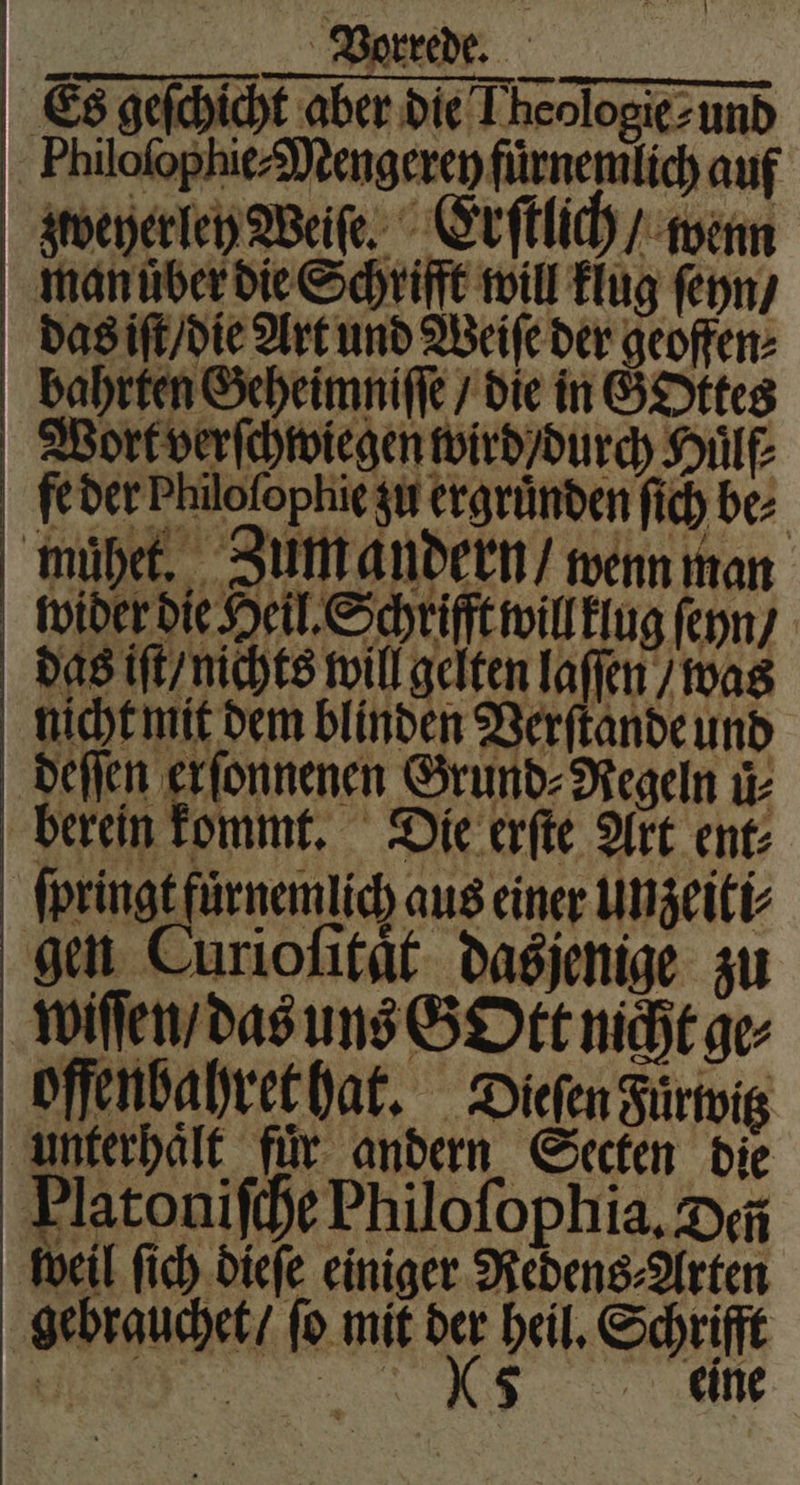 Vorrede.
Es geſchicht aber die Theologie⸗und
Philoſophie⸗Mengerey fuͤrnemlich auf
zweyerley Weiſe. Erſtlich / wenn
man uͤber die Schrifft will klug ſeyn/
das iſt/die Art und Weiſe der geoffen⸗
bahrten Geheimniſſe / die in GOttes
Wort verſchwiegen wird/durch Huͤlf⸗
fe der Philoſophie zu ergruͤnden ſich be⸗
muͤhet. Zum andern/ wenn man
wider die Heil. Schrifft will klug ſeyn/
das iſt/nichts will gelten laſſen / was
nicht mit dem blinden Verſtande und
deſſen erſonnenen Grund⸗Regeln uͤ⸗
berein kommt. Die erſte Art ent⸗
ſpringt fuͤrnemlich aus einer unzeiti⸗
gen Curioſitaͤt dasjenige zu
wiſſen/das uns GOtt nicht ge⸗
offenbahret hat. Dieſen Fuͤrwitz
unterhaͤlt fuͤr andern Secten die
Platoniſche Philoſophia. Deñ
weil ſich dieſe einiger Redens⸗Arten
gebrauchet/ ſo mit der heil. Schrifft
)( 5 eine